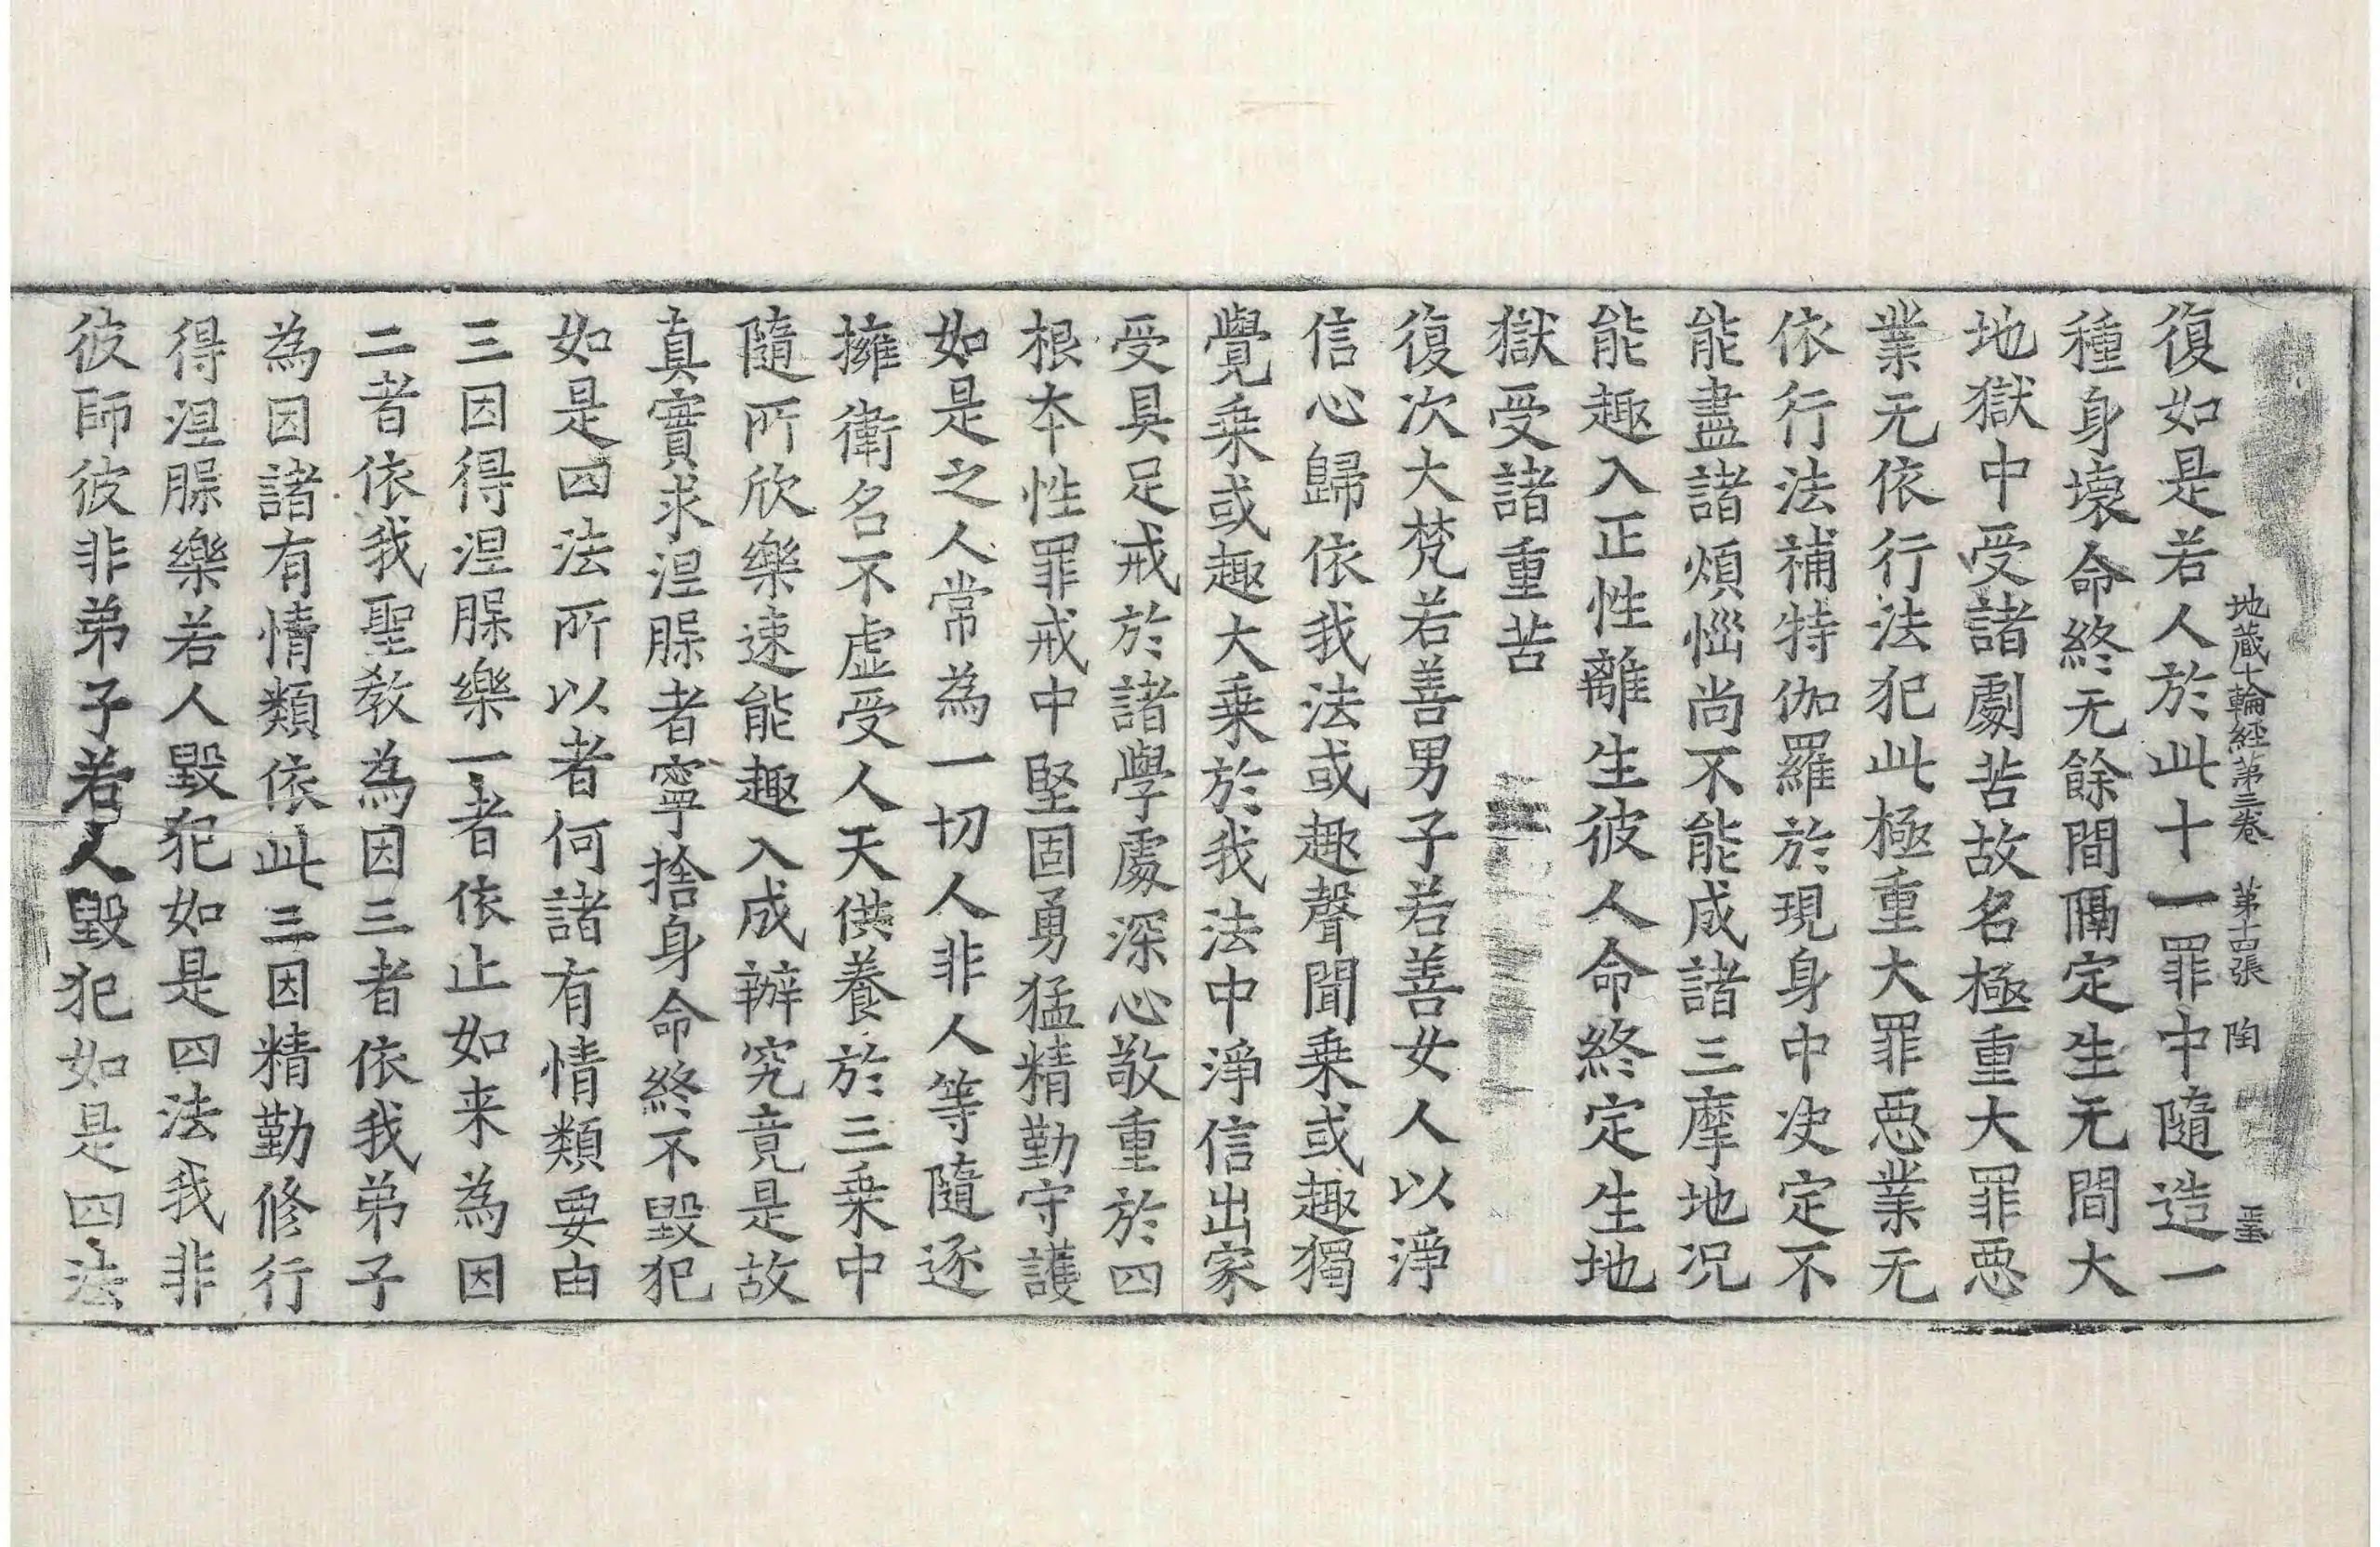 地藏十輪經第三卷 第十四張 陶
復如是若人於此十一罪中隨造一
種身壞命終无餘間隔定生无間大
地獄中受諸劇苦故名極重大罪惡
業无依行法犯此極重大罪惡業无
依行法補特伽羅於現身中决定不
能盡諸煩惱尚不能成諸三摩地况
能趣入正性離生彼人命終定生地
獄受諸重苦
復次大梵若善男子若善女人以淨
信心歸依我法或趣聲聞乗或趣獨
覺乗或趣大乗於我法中淨信出家
受具足戒於諸學處深心敬重於四
根本性罪戒中堅固勇猛精勤守護
如是之人常為一切人非人等隨逐
擁衛名不虛受人天供養於三乗中
隨所欣樂速能趣入成辦究竟是故
真實求涅脲者寧捨身命終不毀犯
如是四法所以者何諸有情類要由
三因得涅脲樂一者依止如来為因
二者依我聖教為因三者依我弟子
為因諸有情類依此三因精勤修行
得涅脲樂若人毀犯如是四法我非
彼師彼非弟子若人毀犯如是四法